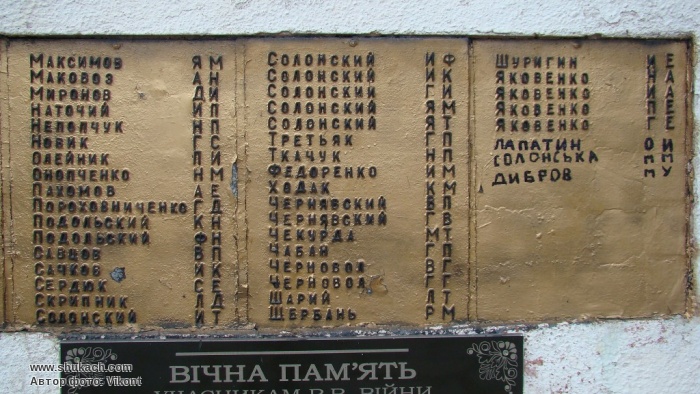 Максимов Я М
Маковоз А Н
Миронов Д И
Наточий И П
Непопчук Н П
Новик Г С
Олейник П И
Онопченко Н М
Пахомов А Е
Пороховниченко Г Д
Подольский К Н
Подольский Ф Н
Савцов В П
Сачков И К
Сердюк С Е
Скрипник Л Д
Солонский И Т
Солонский И Ф
Солонский И К
Солонский Г И
Солонский Я М
Солонский Я Т
Третьяк Г П
Ткачук Н П
Федоренко И М
Ходак К М
Чернявский В П
Чернявский Г В
Чекурда М Т
Чабан Г П
Черновол В Г
Черновол Г Г
Шарий Л Т
Щербань Р М
Шуригин И Е
Яковенко
Яковенко
Яковенко П Е
Яковенко Г Е
Лапатин О И
Солонська М М
Дибров М У
ВІЧНА ПАМ'ЯТЬ
УЧАСНИКАМ В.В. ВІЙНИ
www.shukach.com
Автор фото: Vikont